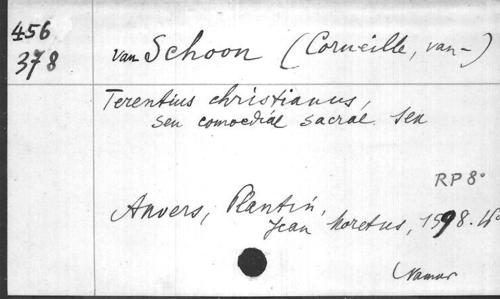 456
378
van Schoon (Corneille, van-)
Terentius christianus,
seu comoediae sacrae sex
RP 8°
Anvers, Plantin,
Jean Moretus, 1598.
Namur